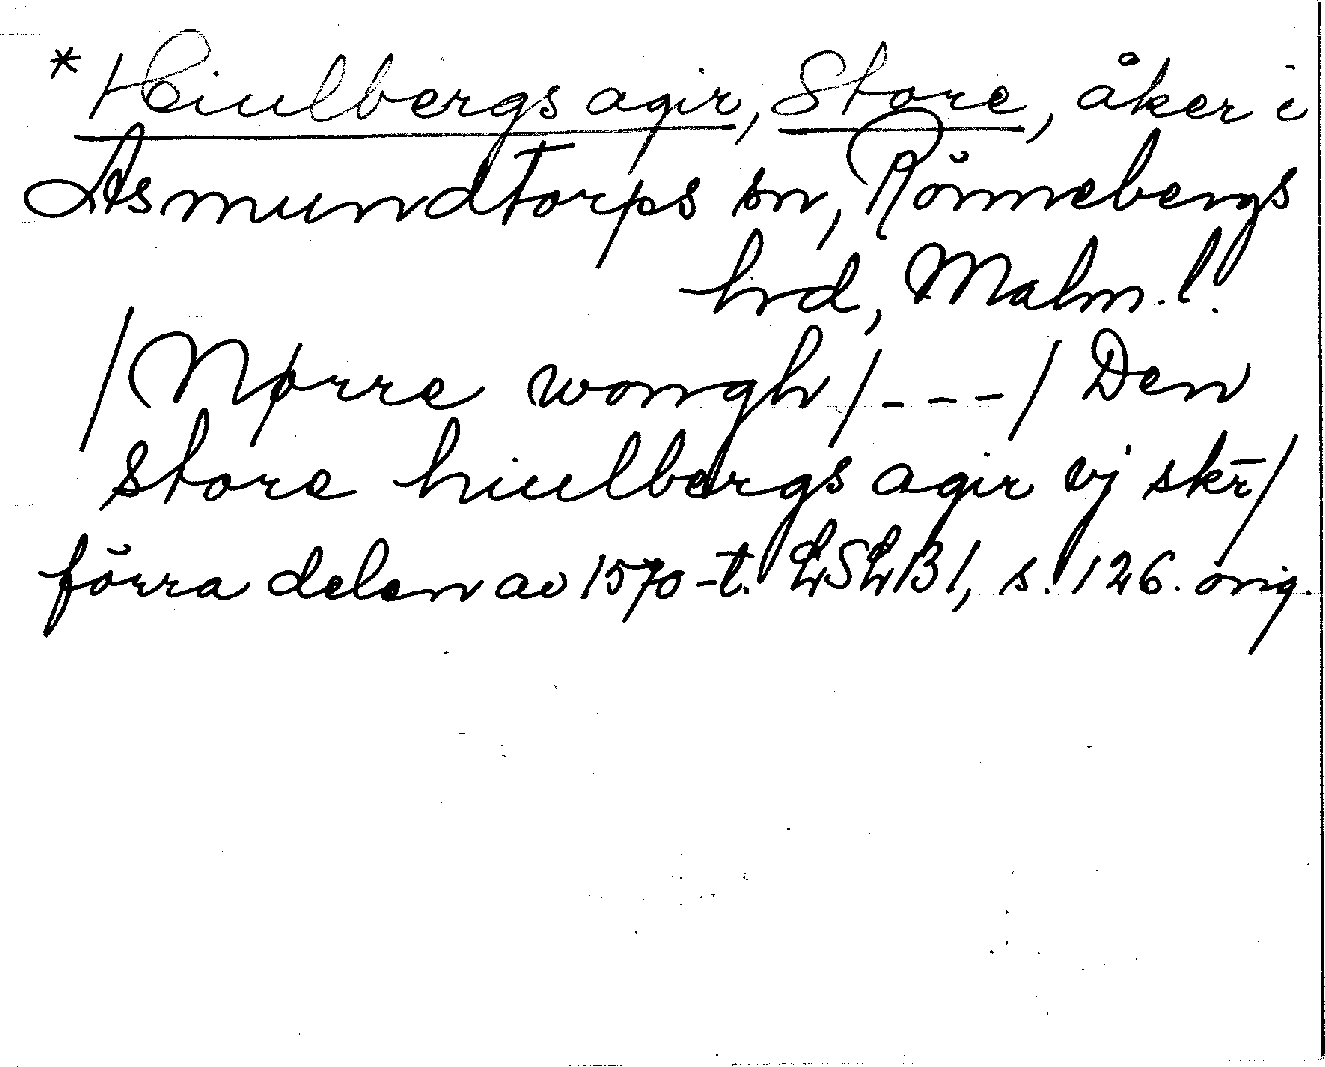 *Hiulbergs agir, Store, åker i
Asmundtorps sn, Rönnebergs
hrd, Malm. l.
/Nørre wongh/---/ Den
store hiulbergs agir vj skr̄/
förra delen av 1570-t. LSLB 1, s. 126. orig.